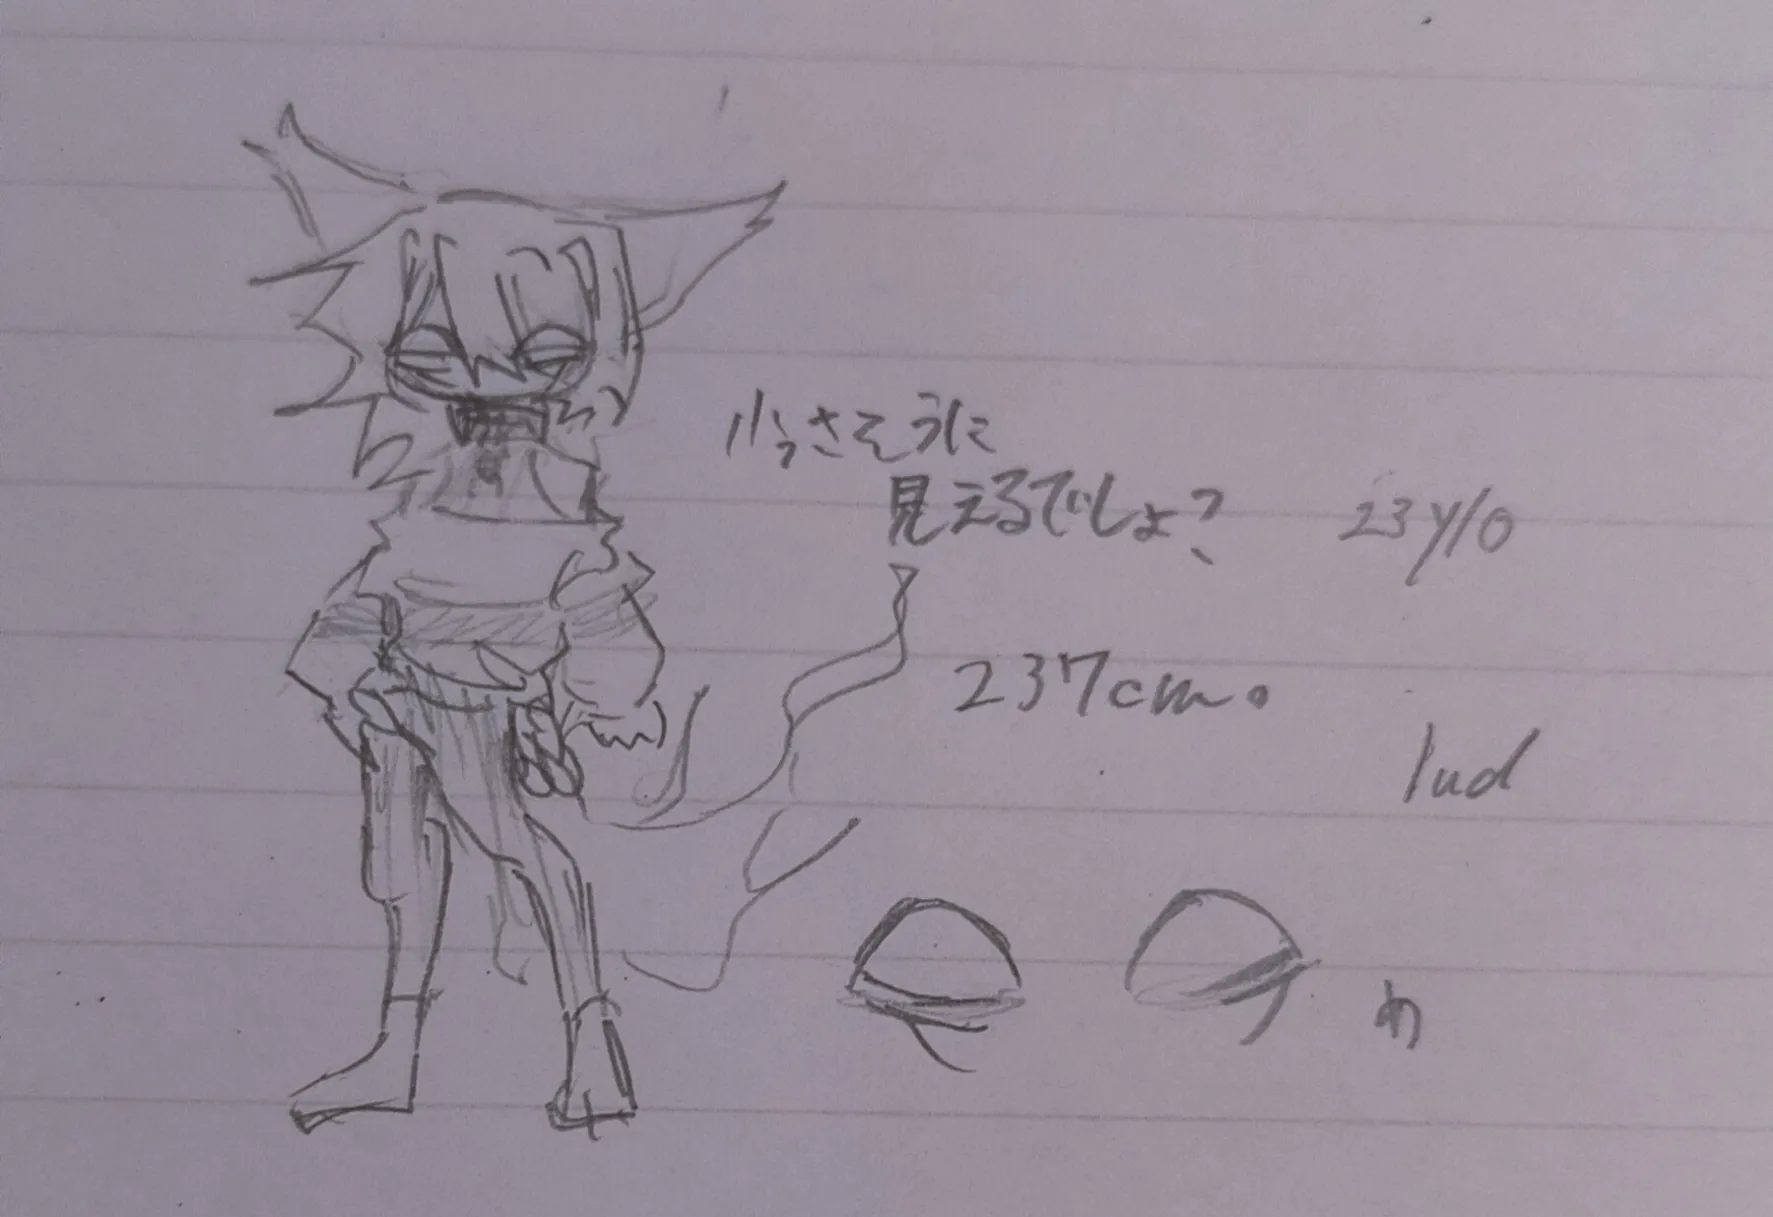 小っさそうに
見えるでしょ?
23y/o
237cm。
lud
め